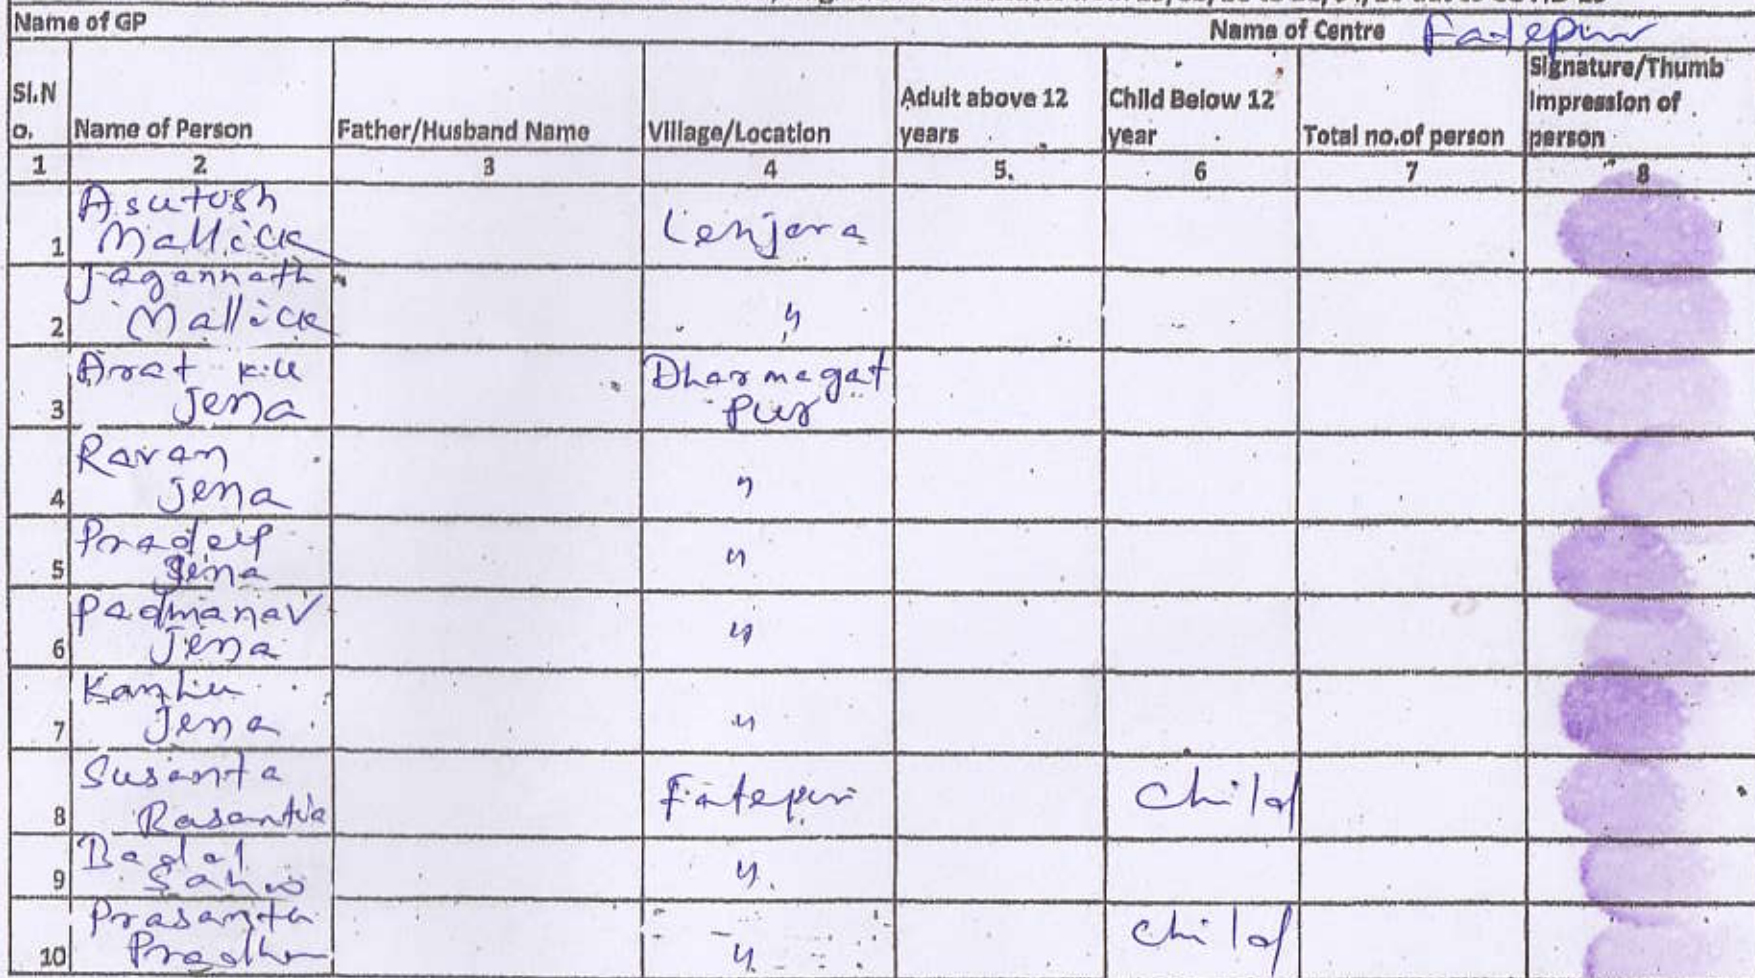 Name of GP Name of Centre Fatepur
Sl.N
o. Name of Person Father/Husband Name Village/Location Adult above 12
years Child Below 12
year Total no.of person Signature/Thumb
Impression of
person
1 2 3 4 5. 6 7 8
1 Asutosh
Mallick Lenjera
2 Jagannath
Mallick "
3 Arat
Jena Dharmagat
pur
4 Ravan
Jena "
5 Pradeep
Jena "
6 Padmanav
Jena "
7 Kanhu
Jena "
8 Susanta
Basantia Fatepur Child
9 Badal
Sahu "
10 Prasanta
Pradhan " Child